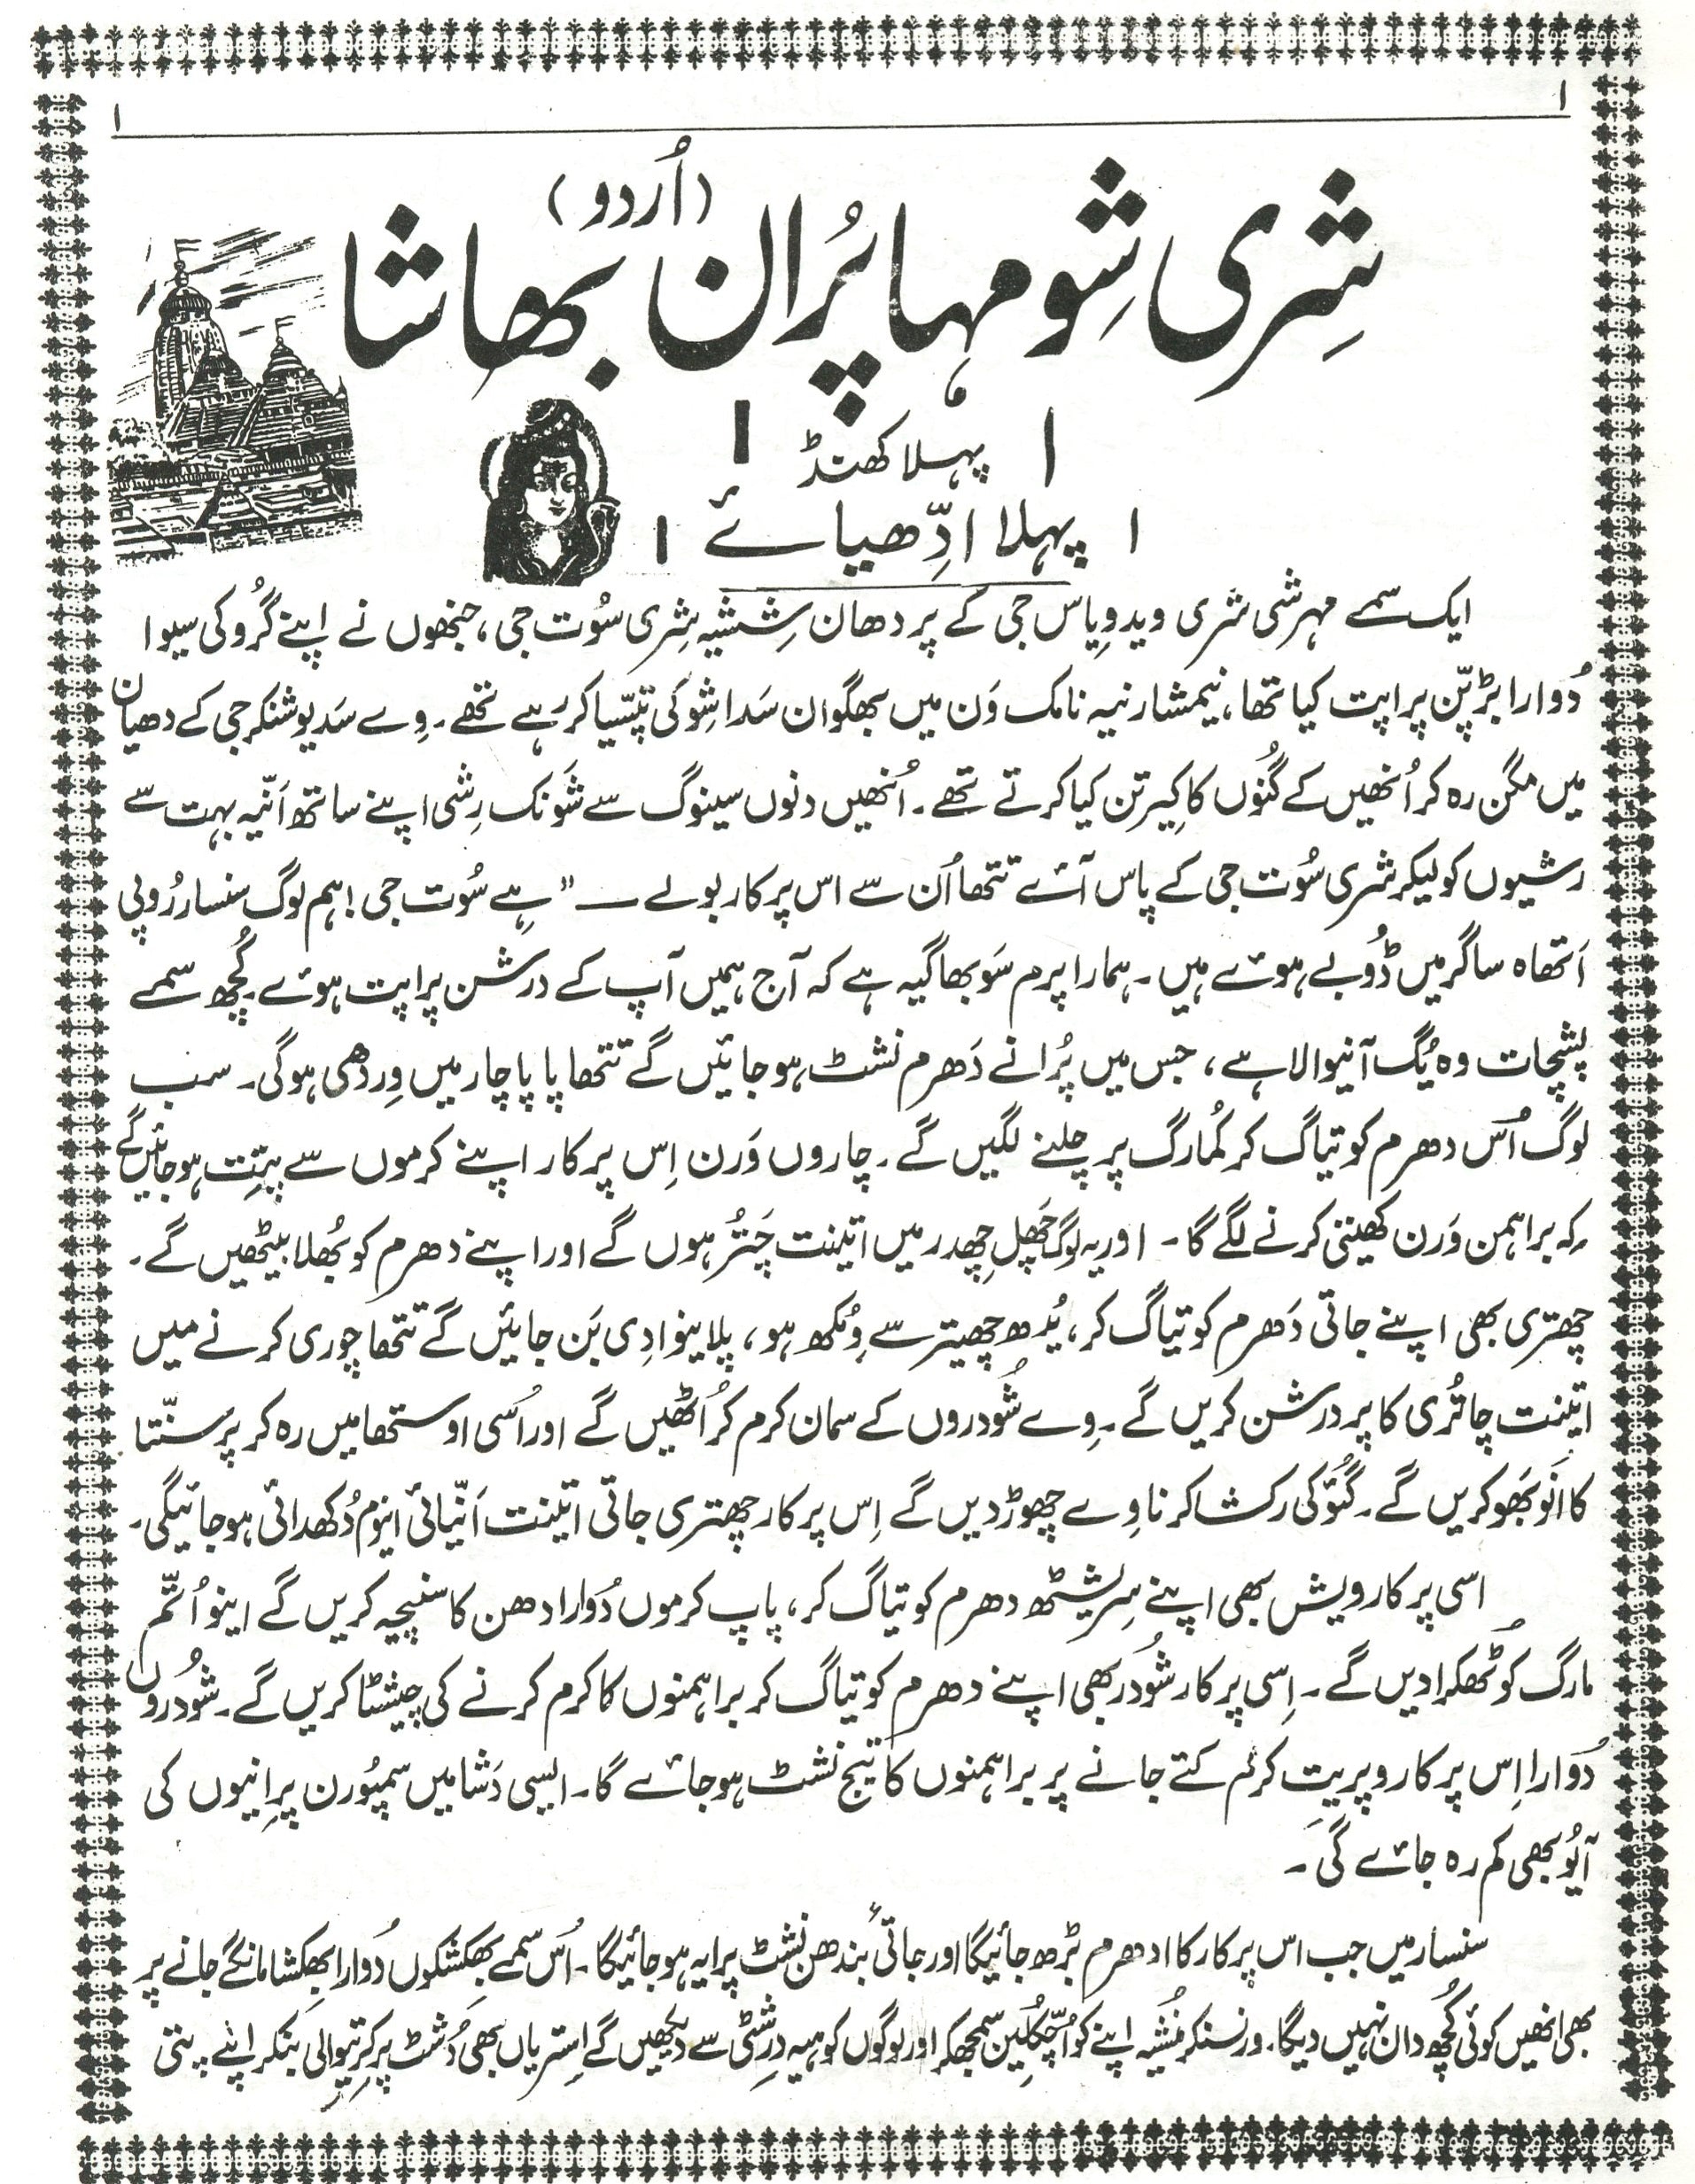 ۱ ۱
(اُردو)
شِری شِو مہا پُران بھاشا
۱ پہلا کھنڈ ۱
۱ پہلا ادِّھیائے ۱
ایک سمے مہرشی شری وید ویِاس جی کے پردھان شِشیہ شِری سُوت جی، جنھوں نے اپنے گُرو کی سیوا
دُوارا بڑپّن پراپت کیا تھا، نیمشارنیہ نامک وَن میں بھگوان سَدا شِو کی تپسّیا کر رہے تھے۔ وِے سَدیو شنکر جی کے دھیان
میں مگن رہ کر اُنھیں کے گُنوں کا کِیرتن کیا کرتے تھے۔ اُنھیں دنوں سینوگ سے شَونک رِشی اپنے ساتھ اَنیّہ بہت سے
رشیوں کو لیکر شری سُوت جی کے پاس آئے تتھا اُن سے اس پرکار بولے — "ہے سُوت جی! ہم لوگ سنسار رُوپی
اَتھاہ ساگر میں ڈُوبے ہوئے ہیں۔ ہمارا پرم سَوبھاگیہ ہے کہ آج ہمیں آپ کے درشن پراپت ہوئے۔ کُچھ سمے
پشچات وہ یُگ آنیوالا ہے، جس میں پُرانے دَھرم نشٹ ہو جائیں گے تتھا پاپاچار میں وِردّھی ہوگی۔ سب
لوگ اُس دھرم کو تیاگ کر کُمارگ پر چلنے لگیں گے۔ چاروں وَرن اِس پرکار اپنے کرموں سے پتِت ہو جائیں گے
کہ براہمن وَرن کھیتی کرنے لگے گا۔ اور یہ لوگ چَھل چِھدر میں اتینت چَتُر ہوں گے اور اپنے دھرم کو بُھلا بیٹھیں گے۔
چھتری بھی اپنے جاتی دَھرم کو تیاگ کر، یُدھ چھیتر سے وِمُکھ ہو، پلاینوادِی بَن جائیں گے تتھا چوری کرنے میں
اتینت چاتُری کا پردرشن کریں گے۔ وِے شُودروں کے سمان کرم کر اُٹھیں گے اور اُسی اوستھا میں رہ کر پرسنّتا
کا اَنُوبَھو کریں گے۔ گئو کی رکشا کرنا وِے چھوڑ دیں گے اِس پرکار چھتری جاتی اتینت اَنّیائی ایوَم دُکھدائی ہو جائیگی۔
اسی پرکار ویش بھی اپنے سِریشٹھ دھرم کو تیاگ کر، پاپ کرموں دُوارا دھن کا سنچیہ کریں گے اینو اُتّم
مارگ کو ٹُھکرا دیں گے۔ اِسی پرکار شُودر بھی اپنے دھرم کو تیاگ کر براہمنوں کا کرم کرنے کی چیشٹا کریں گے۔ شُودروں
دُوارا اِس پرکار وپریِت کرم کئے جانے پر براہمنوں کا تیج نشٹ ہو جائے گا۔ ایسی دَشا میں سمپُورن پرانیوں کی
آیُو بھی کم رہ جائے گی۔
سنسار میں جب اس پرکار کا ادھرم بڑھ جائیگا اور جاتیٔ بندھن نشٹ پرایہ ہو جائیگا۔ اُس سمے بِھکشکوں دُوارا بِھکشا مانگے جانے پر
بھی انھیں کوئی کُچھ دان نہیں دیگا۔ ورنسنکر مُنشیہ اپنے کو اُچّکُلین سمجھکر اور لوگوں کو ہیہ درِشٹی سے دیکھیں گے اِستریاں بھی دُشٹ پرکرِتیوالی بنکر اپنے پتی